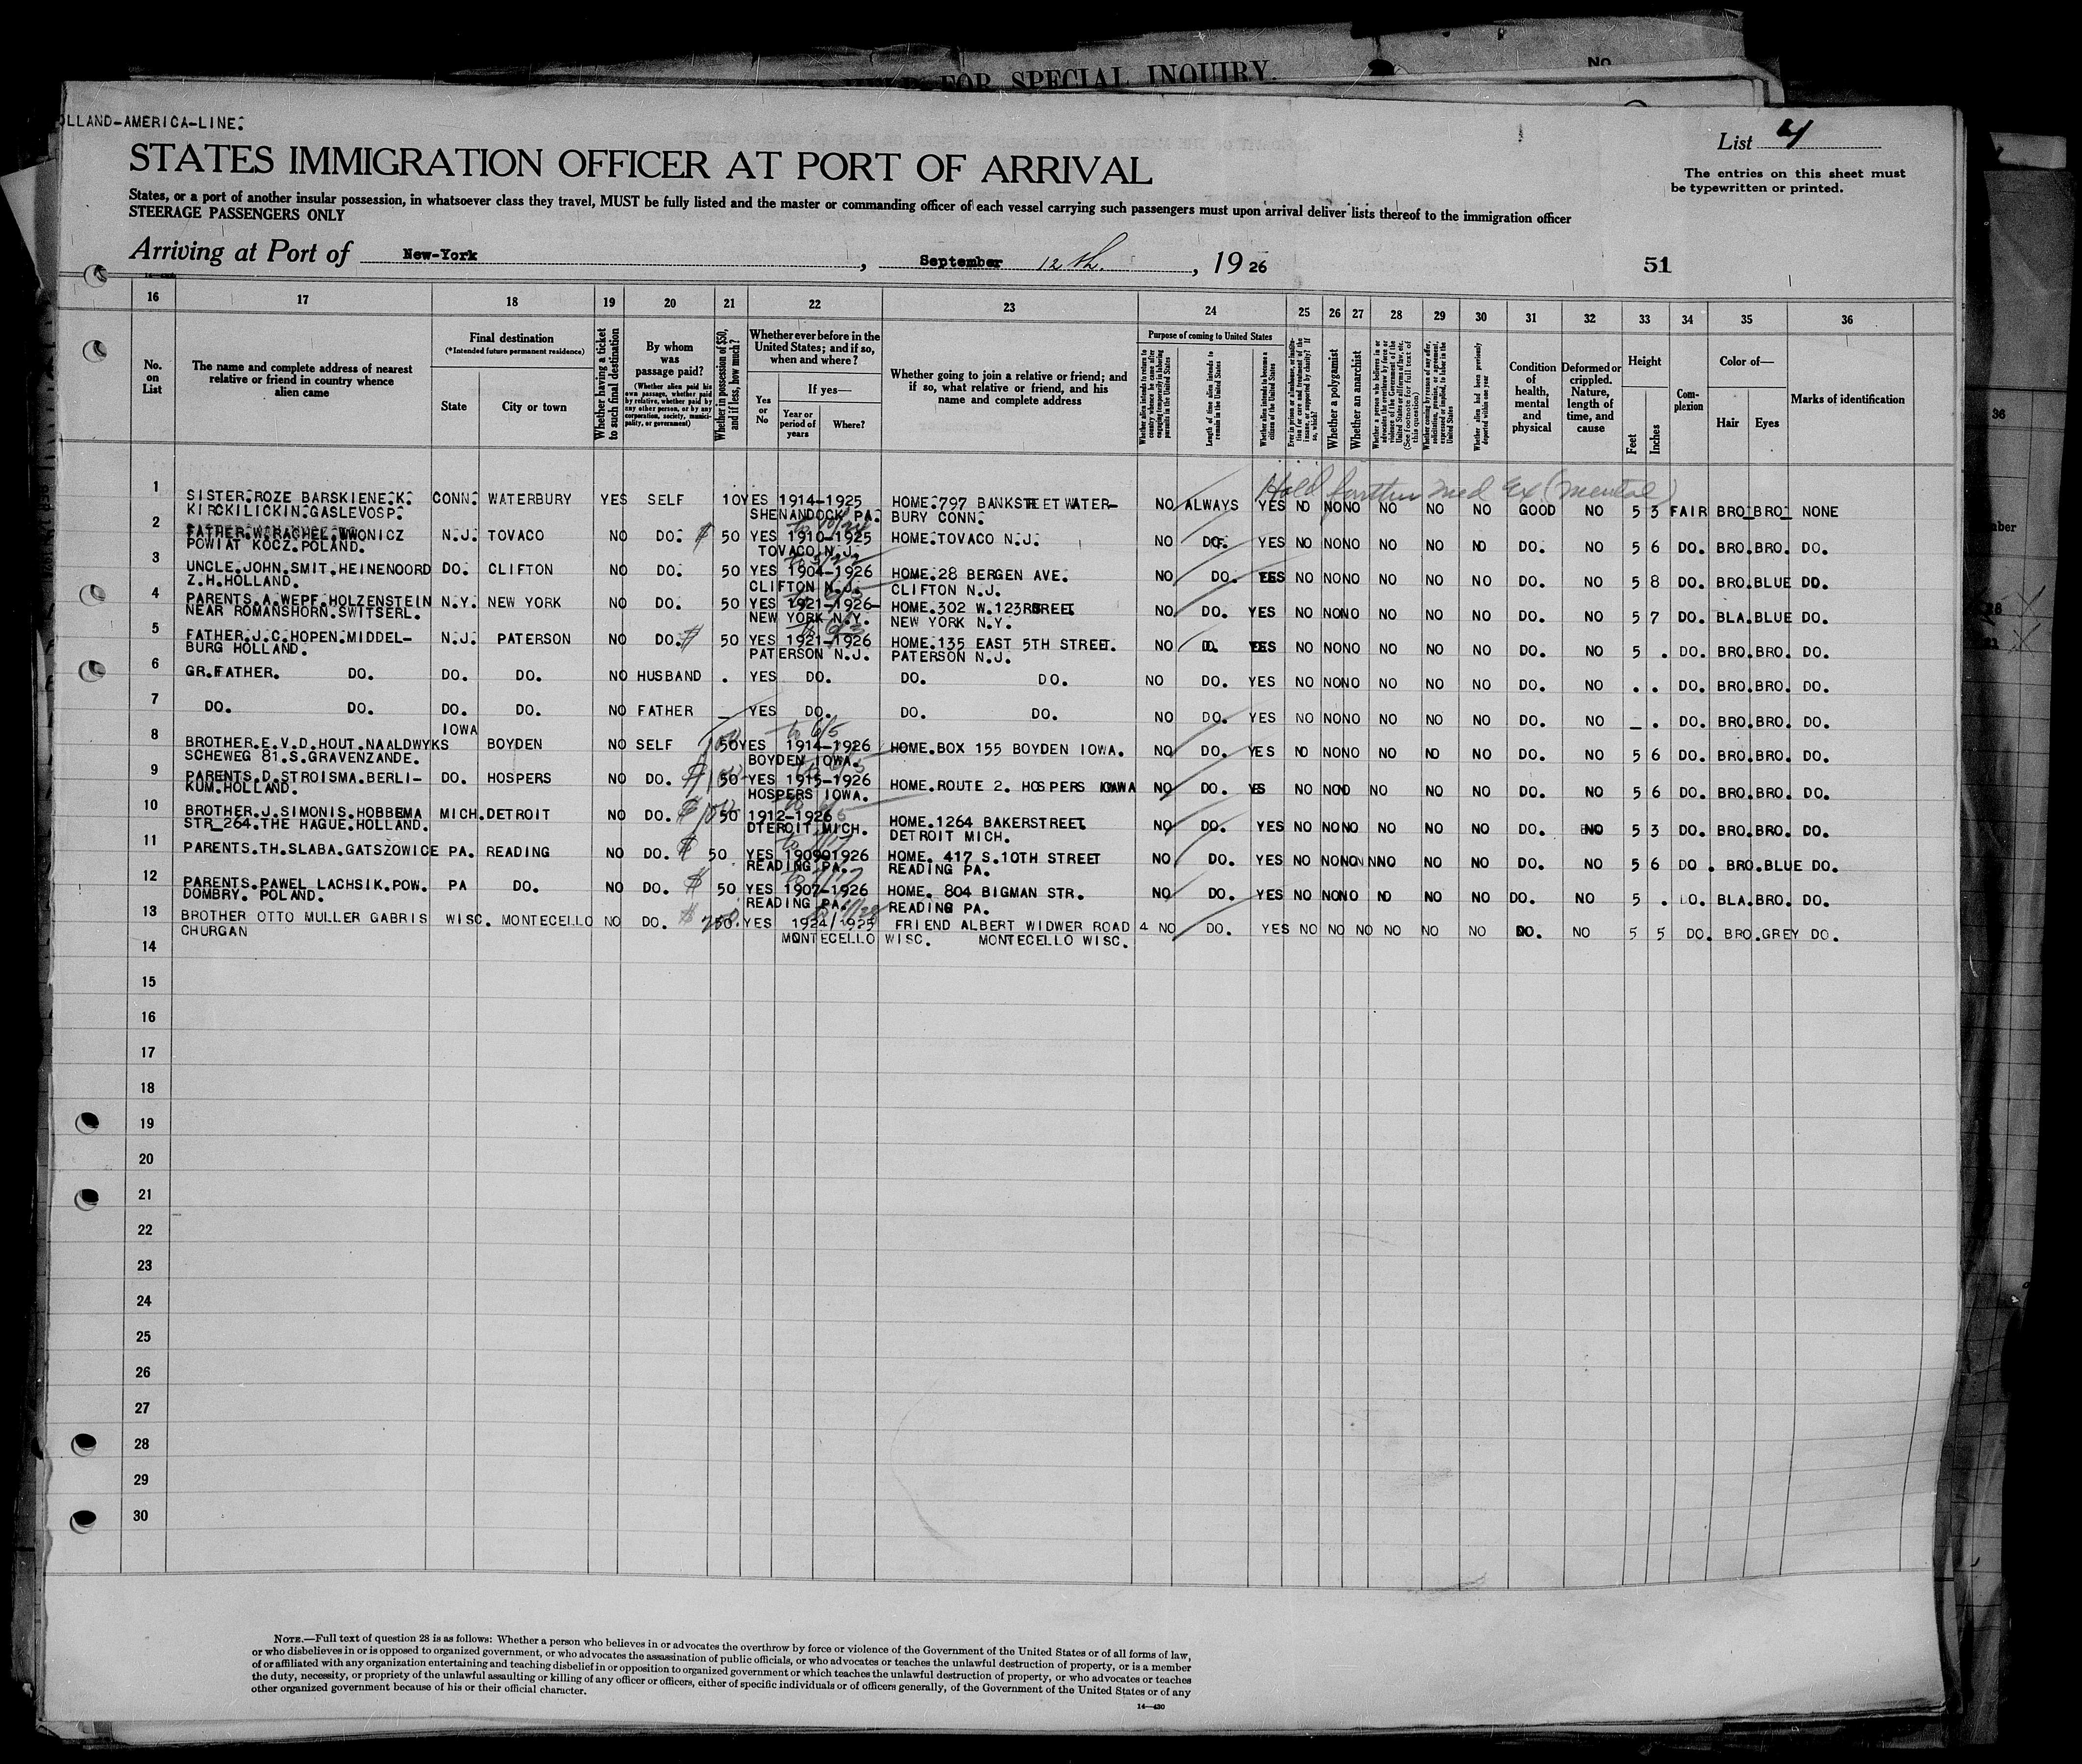 FOR SPECIAL INQUIRY.
No.
OLLAND-AMERICA-LINE.
List 4
STATES IMMIGRATION OFFICER AT PORT OF ARRIVAL
The entries on this sheet must
be typewritten or printed.
States, or a port of another insular possession, in whatsoever class they travel, MUST be fully listed and the master or commanding officer of each vessel carrying such passengers must upon arrival deliver lists thereof to the immigration officer
STEERAGE PASSENGERS ONLY
Arriving at Port of New-York, September 12th., 1926
51
16 17 18 19 20 21 22 23 24 25 26 27 28 29 30 31 32 33 34 35 36
No. on List
The name and complete address of nearest relative or friend in country whence alien came
Final destination
(*Intended future permanent residence)
State
City or town
Whether having a ticket to such final destination
By whom was passage paid?
(Whether alien paid his own passage, whether paid by relative, whether paid by any other person, or by any corporation, society, municipality, or government)
Whether in possession of $50, and if less, how much?
Whether ever before in the United States; and if so, when and where?
Yes or No
If yes—
Year or period of years
Where?
Whether going to join a relative or friend; and if so, what relative or friend, and his name and complete address
Purpose of coming to United States
Length of time alien intends to remain in the United States
Whether alien intends to become a citizen of the United States
Whether a polygamist
Whether an anarchist
Condition of health, mental and physical
Deformed or crippled. Nature, length of time, and cause
Height
Feet
Inches
Complexion
Color of—
Hair
Eyes
Marks of identification
Hold further Med Ex (mental)
1 SISTER.ROZE BARSKIENE.K. CONN. WATERBURY YES SELF 10 YES 1914-1925 HOME.797 BANKSTREET WATER- NO ALWAYS YES NO NO NO NO NO NO GOOD NO 5 3 FAIR BRO. BRO. NONE
KIRCKILICKIN.GASLEVOSP. SHENANDOCK PA. BURY CONN.
2 FATHER.W.RACHEL.WWONICZ N.J. TOVACO NO DO. $ 50 YES 1910-1925 HOME.TOVACO N.J. NO DO. YES NO NO NO NO NO NO DO. NO 5 6 DO. BRO. BRO. DO.
POWIAT KOCZ.POLAND. TOVACO N.J.
3 UNCLE.JOHN.SMIT.HEINENOORD DO. CLIFTON NO DO. 50 YES 1904-1926 HOME.28 BERGEN AVE. NO DO. YES NO NO NO NO NO NO DO. NO 5 8 DO. BRO. BLUE DO.
Z.H.HOLLAND. CLIFTON N.J. CLIFTON N.J.
4 PARENTS.A.WEPF.HOLZENSTEIN N.Y. NEW YORK NO DO. 50 YES 1921-1926- HOME.302 W.123RSREET NO DO. YES NO NO NO NO NO NO DO. NO 5 7 DO. BLA. BLUE DO.
NEAR ROMANSHORN.SWITSERL. NEW YORK N.Y. NEW YORK N.Y.
5 FATHER.J.C.HOPEN.MIDDEL- N.J. PATERSON NO DO. $ 50 YES 1921-1926 HOME.135 EAST 5TH STREET. NO D. YES NO NO NO NO NO NO DO. NO 5 . DO. BRO. BRO. DO.
BURG HOLLAND. PATERSON N.J. PATERSON N.J.
6 GR.FATHER. DO. DO. DO. NO HUSBAND . YES DO. DO. DO. NO DO. YES NO NO NO NO NO NO DO. NO . . DO. BRO. BRO. DO.
7 DO. DO. DO. DO. NO FATHER _ YES DO. DO. DO. NO DO. YES NO NO NO NO NO NO DO. NO _ . DO. BRO. BRO. DO.
IOWA to 6/5
8 BROTHER.E.V.D.HOUT.NAALDWYKS BOYDEN NO SELF 50 YES 1914-1926 HOME.BOX 155 BOYDEN IOWA. NO DO. YES NO NO NO NO NO NO DO. NO 5 6 DO. BRO. BRO. DO.
SCHEWEG 81.S.GRAVENZANDE. BOYDEN IOWA.
9 PARENTS.D.STROISMA.BERLI- DO. HOSPERS NO DO. $ 50 YES 1915-1926 HOME.ROUTE 2. HOSPERS IOWA NO DO. YES NO NO NO NO NO NO DO. NO 5 6 DO. BRO. BRO. DO.
KUM.HOLLAND. HOSPERS IOWA.
10 BROTHER.J.SIMONIS.HOBBEMA MICH. DETROIT NO DO. $ 50 1912-1926 HOME.1264 BAKERSTREET NO DO. YES NO NO NO NO NO NO DO. NO 5 3 DO. BRO. BRO. DO.
STR_264.THE HAGUE.HOLLAND. DTEROIT MICH. DETROIT MICH.
11 PARENTS.TH.SLABA.GATSZOWICE PA. READING NO DO. $ 50 YES 190901926 HOME. 417 S.10TH STREET NO DO. YES NO NO NO NNO NO NO DO. NO 5 6 DO. BRO. BLUE DO.
READING PA. READING PA.
12 PARENTS.PAWEL LACHSIK.POW. PA DO. NO DO. $ 50 YES 1907-1926 HOME. 804 BIGMAN STR. NO DO. YES NO NO NO NO NO NO DO. NO 5 . DO. BLA. BRO. DO.
DOMBRY. POLAND. READING PA. READING PA.
13 BROTHER OTTO MULLER GABRIS WISC. MONTECELLO NO DO. $ 250. YES 1924/1925 FRIEND ALBERT WIDWER ROAD 4 NO DO. YES NO NO NO NO NO NO DO. NO 5 5 DO. BRO. GREY DO.
CHURGAN MONTECELLO WISC. MONTECELLO WISC.
14
15
16
17
18
19
20
21
22
23
24
25
26
27
28
29
30
NOTE.—Full text of question 28 is as follows: Whether a person who believes in or advocates the overthrow by force or violence of the Government of the United States or of all forms of law,
or who disbelieves in or is opposed to organized government, or who advocates the assassination of public officials, or who advocates or teaches the unlawful destruction of property, or is a member
of or affiliated with any organization entertaining and teaching disbelief in or opposition to organized government or which teaches the unlawful destruction of property, or who advocates or teaches
the duty, necessity, or propriety of the unlawful assaulting or killing of any officer or officers, either of specific individuals or of officers generally, of the Government of the United States or of any
other organized government because of his or their official character.
14—430